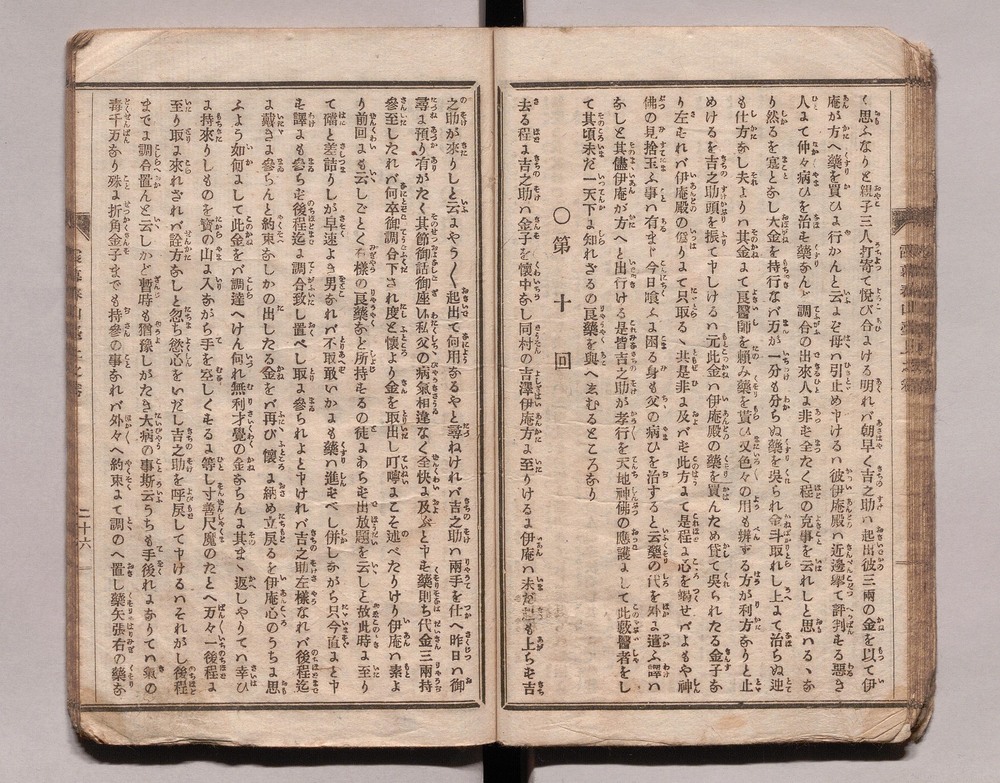 く思ふなりと親子三人打寄て悦び合ける明れバ朝早く吉之助ハ起出彼三兩の金を以て伊
庵が方へ藥を買ひに行かんと云にぞ母ハ引止め申けるハ彼伊庵殿ハ近邊擧て評判もる惡き
人にて仲々病ひを治も藥なんど調合の出來人に非も全たく程の克事を云れしと思ハるゝな
り然るを寔となし大金を持行なバ万が一分も分らぬ藥を吳られ金斗取れし上にて治らぬ迚
も仕方なし夫よりハ其金にて良醫師を賴み藥を貰ひ又色々の用も辨ずる方が利方なりと止
めけるを吉之助頭を振て申しけるハ元此金ハ伊庵殿の藥を買んため貸て吳られたる金子な
り左もれバ伊庵殿の僞りにて只取るゝ共是非に及バも此方にて是程に心を竭せバよもや神
佛の見捨玉ふ事ハ有まじ今日喰ふに困る身も父の病ひを治すると云藥の代を外に遣ふ譯ハ
なしと其儘伊庵が方へと出行ける是皆吉之助が孝行を天地神佛の應護にして此藪醫者をし
て其頃未だ一天下に知れざるの良藥を與へ玄むるところなり
○第十回
去る程に吉之助ハ金子を懷中なし同村の吉澤伊庵方に至りけるに伊庵ハ未だ も上らも吉
之助が來りしと云にやう〱起出て何用なるやと尋ねけれバ吉之助ハ兩手を仕へ昨日ハ御
尋に預り有がたく其節御話御座い私父の病氣相違なく全快に及ぶと申も藥則ち代金三兩持
參至したれバ何卒御調合下され度と懷より金を取出し叮嚀にこそ述べたりけり伊庵ハ素よ
り前回にも云しごとく 樣の良藥など所持もるの徒にあらも出放題を云しと故此時に至り
て礑と差詰りしが早速よき男なれバ不取敢いかにも藥ハ進もべし併しながら只今直にと申
も譯にも參らも後程迄に調合致し置べし取に參られよと申けれバ吉之助左樣なれバ後程迄
に戴きに參らんと約束なしかの出したる金をバ再び懷に納め立戾るを伊庵心のうちに思
ふよう如何にして此金をバ調達へけん何れ無利才覺の金ならんに其まゝ返しやりてハ幸ひ
に持來りしものを寶の山に入ながら手を空しくもるに等し寸善尺魔のたとへ万々一後程に
至り取に來れされバ詮方なしと忽ち慾心をいだし吉之助を呼戾して申けるハそれがし後程
までに調合置んと云しかど暫時も猶豫しがたき大病の事斯云うちも手後れになりてハ氣の
毒千万なり殊に折角金子までも持參の事なれバ外々へ約束にて調のへ置し藥矢張右の藥な
二十六